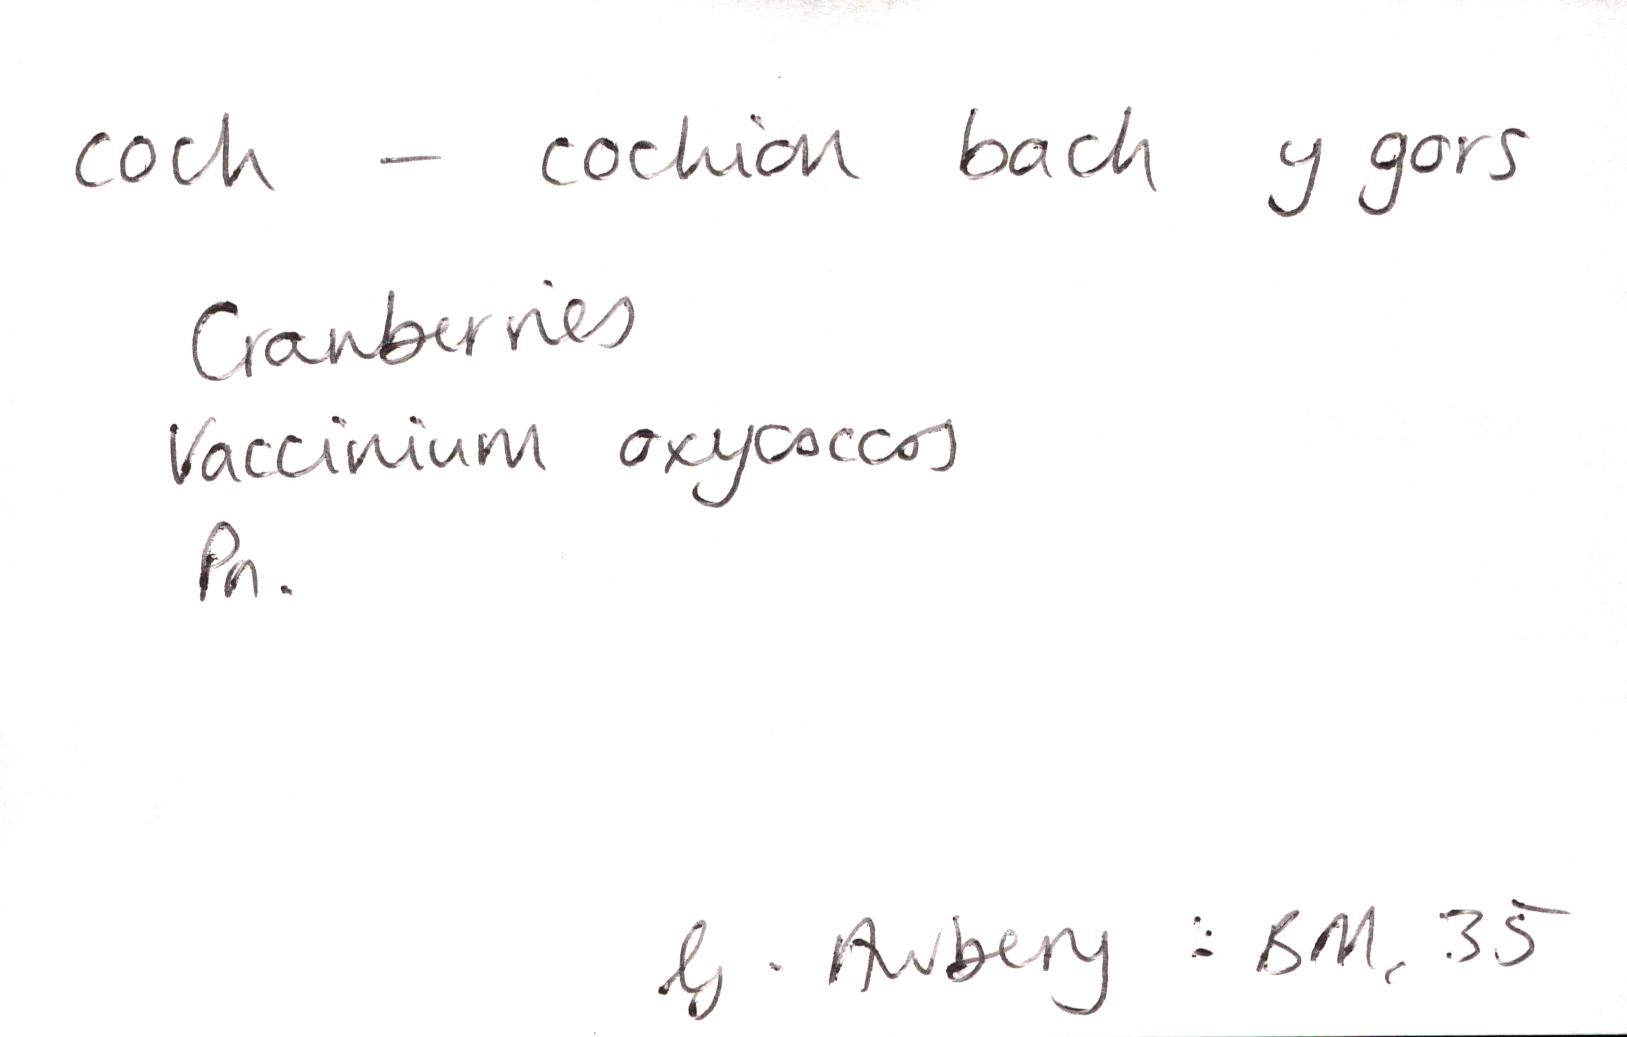 coch – cochion bach y gors
Cranberries
Vaccinium oxycoccos
Pn.
G. Awbery : BM, 35